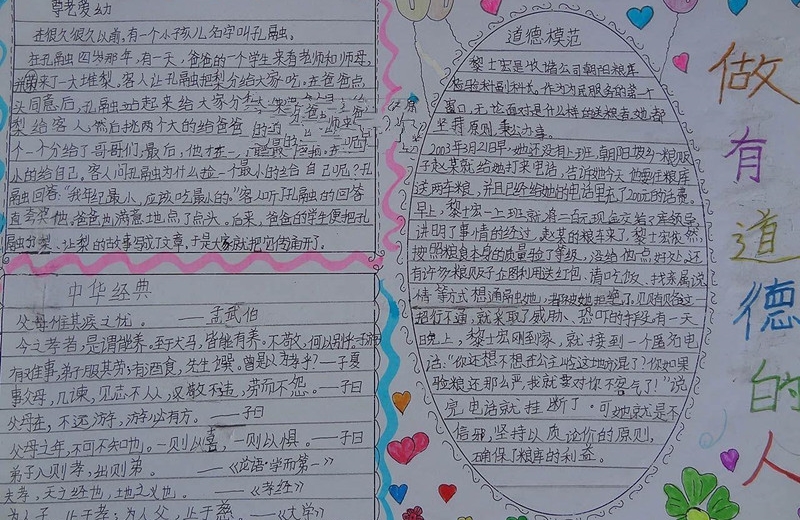 尊老爱幼
在很久很久以前,有一个小孩儿名字叫孔融。
在孔融四岁那年,有一天,爸爸的一个学生来看老师和师母,
并带来了一大堆梨。客人让孔融把梨分给大家吃。在爸爸点
头同意后,孔融站起来给大家分
梨给客人,然后挑两个大的给爸爸
个一个分给了哥哥们,最后,他才在一
小的给自己,客人问孔融为什么捡一个最小的给自己呢?孔
融回答:“我年纪最小,应该吃最小的。”客人听了孔融的回答
直夸奖他。爸爸也满意地点了点头。后来,爸爸的学生便把孔
融分梨、让梨的故事写成了文章,于是大家就把它传开了。
中华经典
父母惟其疾之忧。——孟武伯
今之孝者,是谓能养。至于犬马,皆能有养。不敬,何以别乎?
有好事,弟子服其劳;有酒食,先生馔。曾是以为孝乎?—子夏
事父母,几谏,见志不从,又敬不违,劳而不怨。——子曰
父母在,不远游,游必有方。——子曰
父母之年,不可不知也。一则以喜,一则以惧。——子曰
弟子入则孝,出则弟。——《论语·学而第一》
夫孝,天之经也,地之义也。——《孝经》
为人子,止于孝;为人父,止于慈。——《大学》
道德模范
黎士宏是
公司朝阳粮库
检验科副科长。作为为民服务的第一
窗口,无论面对是什么样的送粮者,她都
坚持原则,秉公办事。
2003年3月21日早,她还没有上班,朝阳坡乡粮贩
子赵某就给她打来电话,告诉她今天他要往粮库
送两车粮,并且已经给她的电话里充了200元的话费。
早上,黎士宏一上班就将二百元现金交给了库领导
讲明了事情的经过,赵某的粮车来了,黎士宏依然
按照粮食本身的质量验了等级,没给他一点好处,还
有许多粮贩子企图利用送红包,请吃饭、找亲属说
情等方式想通融她,都被她拒绝了。见贿赂这
招行不通,就采取了威胁、恐吓的手段,有一天
晚上,黎士宏刚到家,就接到一个匿名电
话:“你还想不想在公主岭这地方混了?你如果
验粮还那么严,我就要对你不客气了!”说
完电话就挂断了。可她就是不
信邪,坚持以质论价的原则,
确保了粮库的利益。
做有道德的人